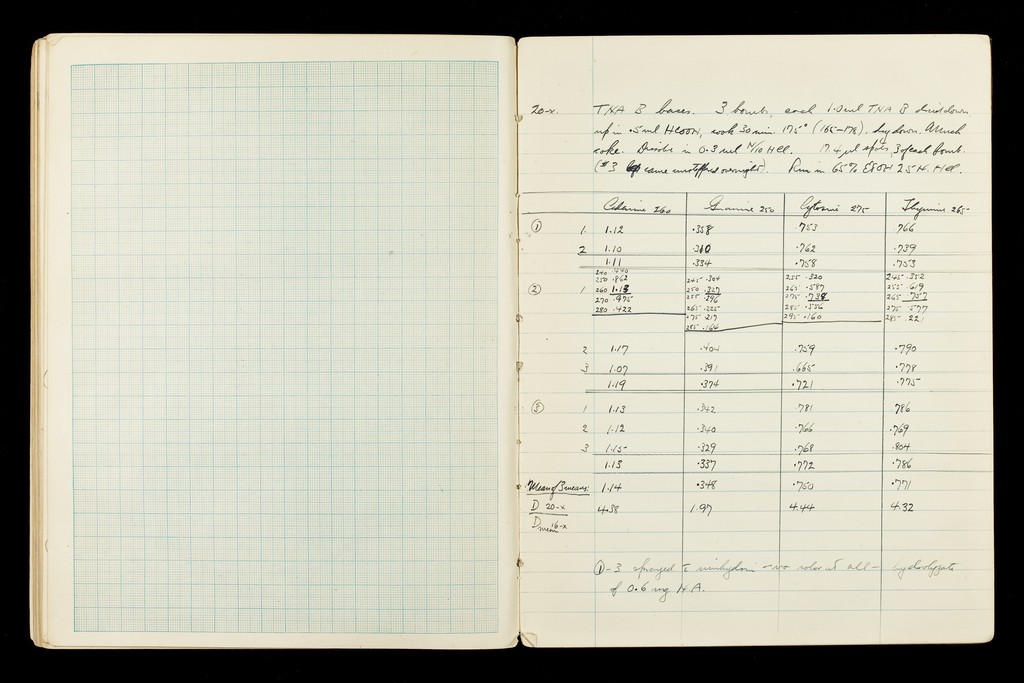 20-x. TNA B bases. 3 bombs, each 1.0 ml TNA B dried down,
up in .5 ml HCOOH, cook 30 min. 175° (165-178). dry down. Much
coke. Dissolve in 0.3 ml N/10 HCl. 17.4 µl spots, 3 of each bomb.
(#3 came unstoppered overnight). Run in 65% EtOH 2.5 N. HCl.
Adenine 260 Guanine 250 Cytosine 275 Thymine 265
① 1. 1.12 .358 .753 .766
2 1.10 .310 .762 .739
1.11 .334 .758 .753
240 .440
250 .862 245 .304 255 .320 245 .352
② 1 260 1.13 250 .327 265 .587 255 .619
270 .975 255 .296 275 .738 265 .757
280 .422 265 .225 285 .556 275 .577
275 .217 295 .160 285 .221
285 .164
2 1.17 .404 .759 .790
3 1.07 .391 .665 .778
1.19 .374 .721 .775
③ 1 1.13 .342 .781 .786
2 1.12 .340 .766 .769
3 1.15 .329 .768 .804
1.13 .337 .772 .786
Mean of 3 means: 1.14 .348 .750 .771
D 20-x 4.38 1.97 4.44 4.32
D mean 16-x
①-3 sprayed c ninhydrin - no color at all - hydrolyzate
of 0.6 mg N.A.